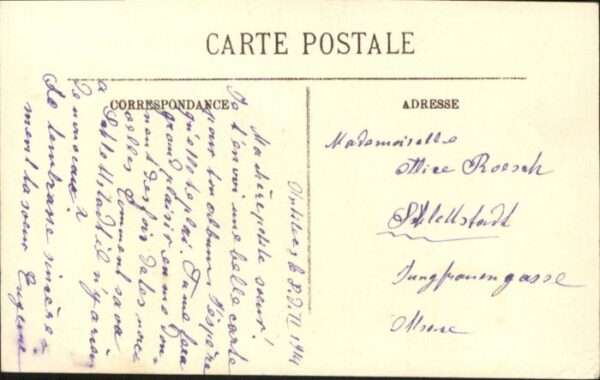 CARTE POSTALE
CORRESPONDANCE
ADRESSE
le 8.D. 1911
Ma chère petite soeur!
Je t'envoi une belle carte
pour ton album. J'espère
qu'elle te plai. Tu me fera
grand plaisir en me don-
nent des fois de tes nou-
velles. Comment sa va
a Schlettstadt il n'y a rien
de nouveau?
Je t'embrasse sincère-
ment ta soeur Eugénie
Mademoiselle
Alice Roesch
Schlettstadt
Jungfrauengasse
Alsace